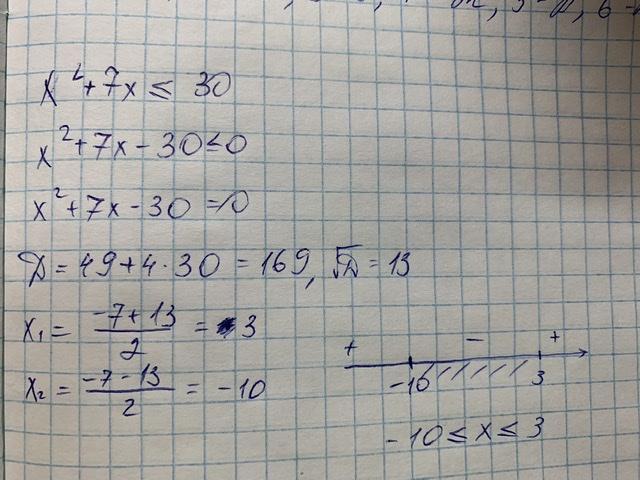 x² + 7x ≤ 30
x² + 7x - 30 ≤ 0
x² + 7x - 30 = 0
D = 49 + 4 · 30 = 169, √D = 13
x₁ = (-7 + 13)/2 = 3
x₂ = (-7 - 13)/2 = -10
+ - +
-10 3
-10 ≤ x ≤ 3